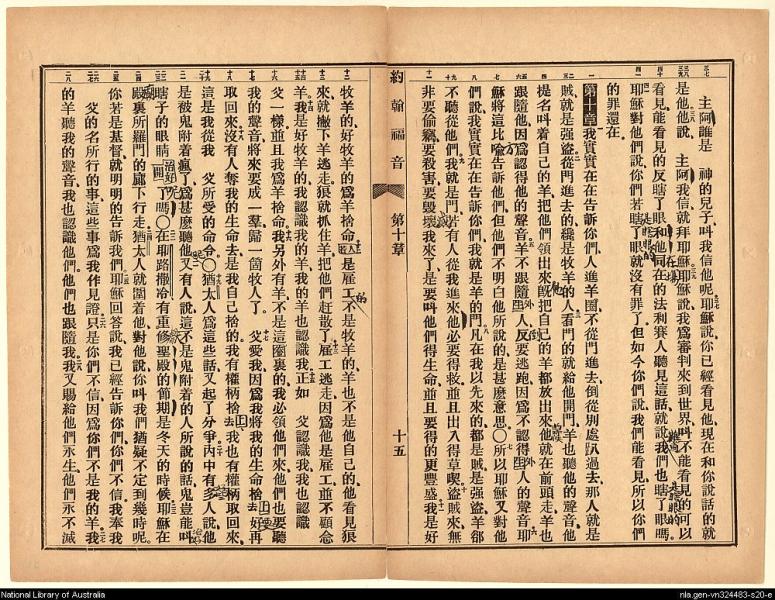 主阿誰是　神的兒子叫我信他呢耶穌說你已經看見他現在和你說話的就
是他他說　主阿我信就拜耶穌耶穌說我爲審判來到世界叫不能看見的可以
看見能看見的反瞎了眼和他同在的法利賽人聽見這話就說我們也瞎了眼嗎
耶穌對他們說你們若瞎了眼就沒有罪了但如今你們說我們能看見所以你們
的罪還在
第十章我實實在在告訴你們人進羊圈不從門進去倒從別處趴過去那人就是
賊就是强盜從門進去的纔是牧羊的人看門的就給他開門羊也聽他的聲音他
提名叫着自己的羊把他們領出來旣把自己的羊都放出來他就在前頭走羊也
跟隨他因爲認得他的聲音羊不跟隨人反要逃跑因爲不認得人的聲音耶
穌將這比喻告訴他們但他們不明白他所說的是甚麽意思〇所以耶穌又對他
們說我實實在在告訴你們我就是羊的門凡在我以先來的都是賊是强盜羊郤
不聽從他們我就是門若有人從我進來他必要得救並且出入得草喫盜賊來無
非要偷竊要殺害要毀壞我來了是要叫他們得生命並且要得的更豐盛我是好
約翰福音　第十章　十五
牧羊的好牧羊的爲羊捨命是雇工不是牧羊的羊也不是他自己的他看見狼
來就撇下羊逃走狼就抓住羊把他們趕散了雇工逃走因爲他是雇工並不顧念
羊我是好牧羊的我認識我的羊我的羊也認識我正如　父認識我我也認識
父一樣並且我爲羊捨命我另外有羊不是這圈裏的我必須領他們來他們也要聽
我的聲音將來要成一羣歸一箇牧人了　父愛我因爲我將我的生命捨去好再
取回來沒有人奪我的生命去是我自己捨的我有權柄捨去我也有權柄取回來
這是我從我　父所受的命令〇猶太人爲這些話又起了分爭內中有多人說他
是被鬼附着瘋了爲甚麽聽他又有人說這不是鬼附着的人所說的話鬼豈能叫
瞎子的眼睛了嗎〇在耶路撒冷有重修聖殿的節期是冬天的時候耶穌在
殿裏所羅門的廊下行走猶太人就圍着他對他說你叫我們猶疑不定到幾時呢
你若是基督就明明的告訴我們耶穌回答說我已經告訴你們你們不信我奉我
父的名所行的事這些事爲我作見證只是你們不信因爲你們不是我的羊我
的羊聽我的聲音我也認識他們他們也跟隨我我又賜給他們永生他們永不滅
National Library of Australia
nla.gen-vn324483-s20-e